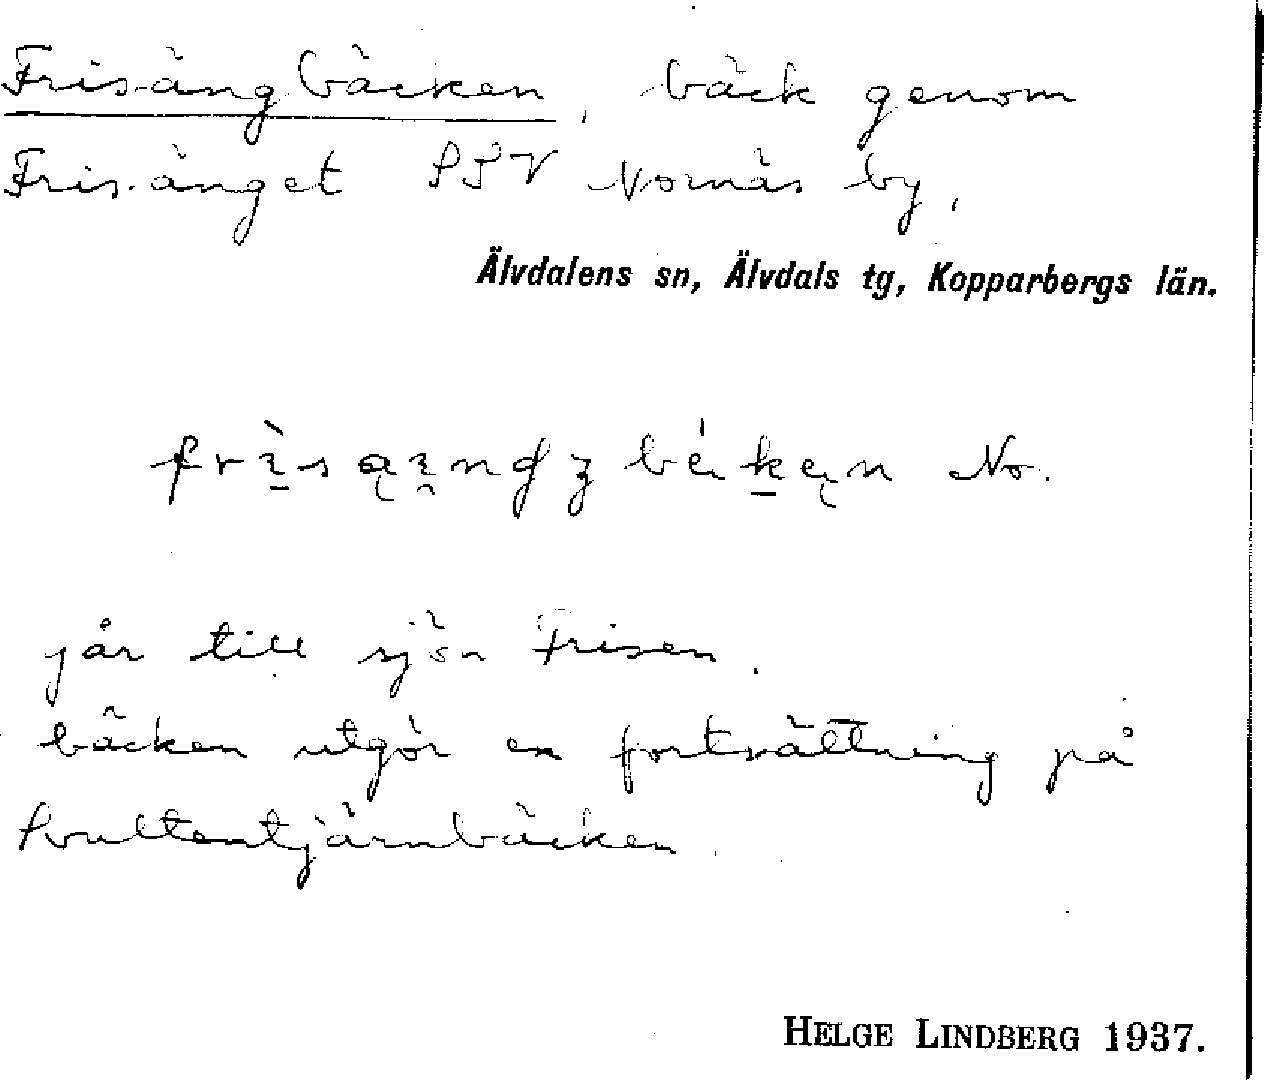 Frisängbäcken, bäck genom
Frisänget SSV Nornäs by,
Älvdalens sn, Älvdals tg, Kopparbergs län.
No.
går till sjön Frisen.
bäcken utgör en fortsättning på
tjärnbäcken.
HELGE LINDBERG 1937.